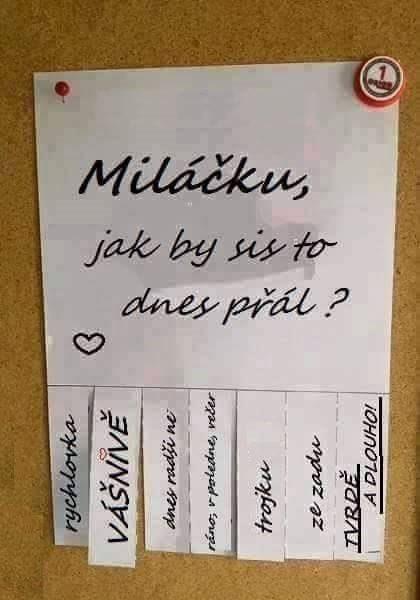 Miláčku,
jak by sis to
dnes přál?
rychlovka
VÁŠNIVĚ
dnes radši ne
ráno, v poledne, večer
trojku
ze zadu
TVRDĚ
A DLOUHO!
1